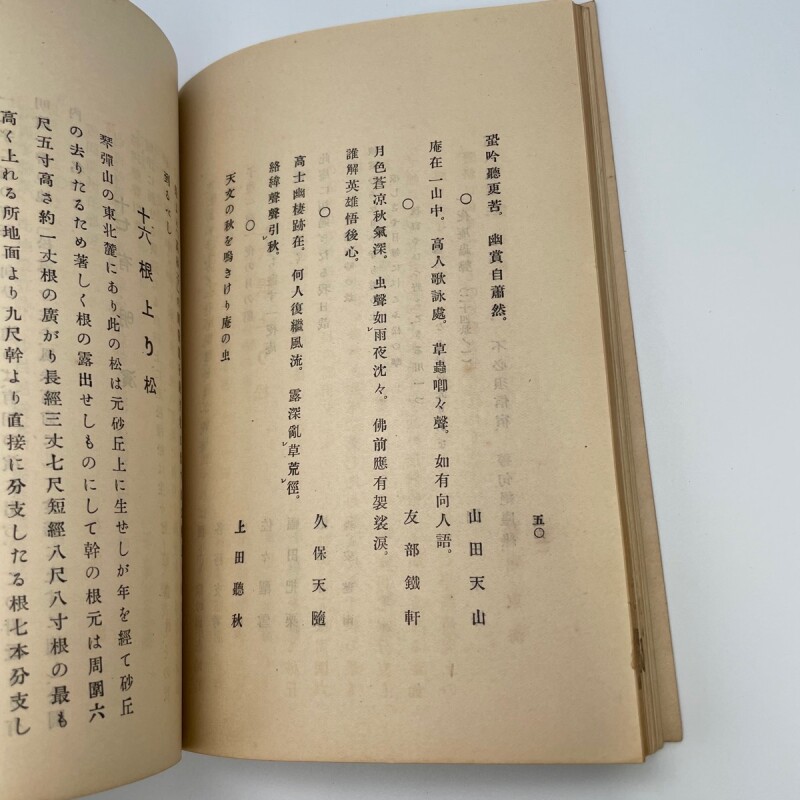 蛩吟聽更苦。幽賞自蕭然。
〇
山田天山
庵在一山中。高人歌詠處。草蟲喞々聲。如有向人語。
〇
友部鐵軒
月色蒼凉秋氣深。虫聲如レ雨夜沈々。佛前應有袈裟淚。
誰解英雄悟後心。
〇
久保天隨
高士幽棲跡在。何人復繼風流。露深亂レ草荒レ徑。
絡緯聲聲引レ秋。
〇
上田聽秋
天文の秋を鳴きけり庵の虫
五〇
到るべし
十六 根上り松
琴彈山の東北麓にあり此の松は元砂丘上に生せしが年を經て砂丘
の去りたるため著しく根の露出せしものにして幹の根元は周圍六
尺五寸高さ約一丈根の廣がり長經三丈七尺短經八尺八寸根の最も
高く上れる所地面より九尺幹より直接に分支したる根七本分支し